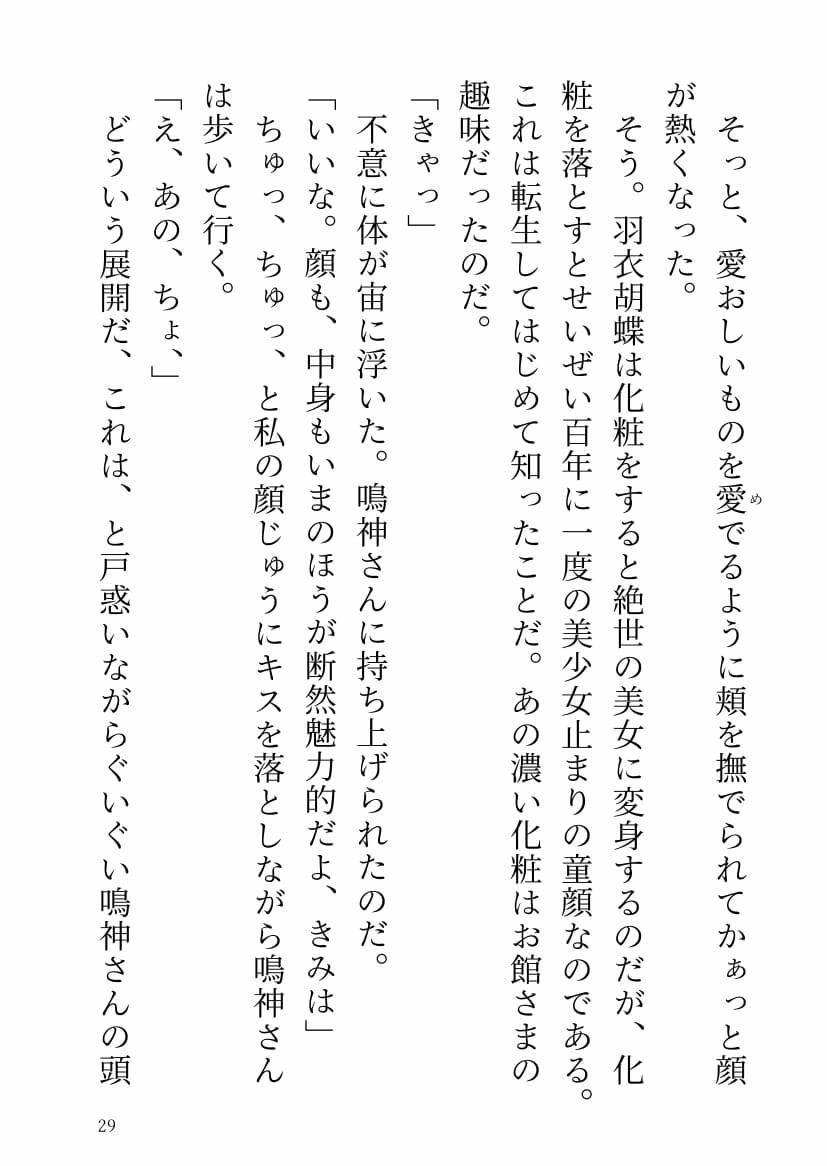 そっと、愛おしいものを愛でるように頬を撫でられてかぁっと顔
め
が熱くなった。
そう。羽衣胡蝶は化粧をすると絶世の美女に変身するのだが、化
粧を落とすとせいぜい百年に一度の美少女止まりの童顔なのである。
これは転生してはじめて知ったことだ。あの濃い化粧はお館さまの
趣味だったのだ。
「きゃっ」
不意に体が宙に浮いた。鳴神さんに持ち上げられたのだ。
「いいな。顔も、中身もいまのほうが断然魅力的だよ、きみは」
ちゅっ、ちゅっ、と私の顔じゅうにキスを落としながら鳴神さん
は歩いて行く。
「え、あの、ちょ、」
どういう展開だ、これは、と戸惑いながらぐいぐい鳴神さんの頭
29